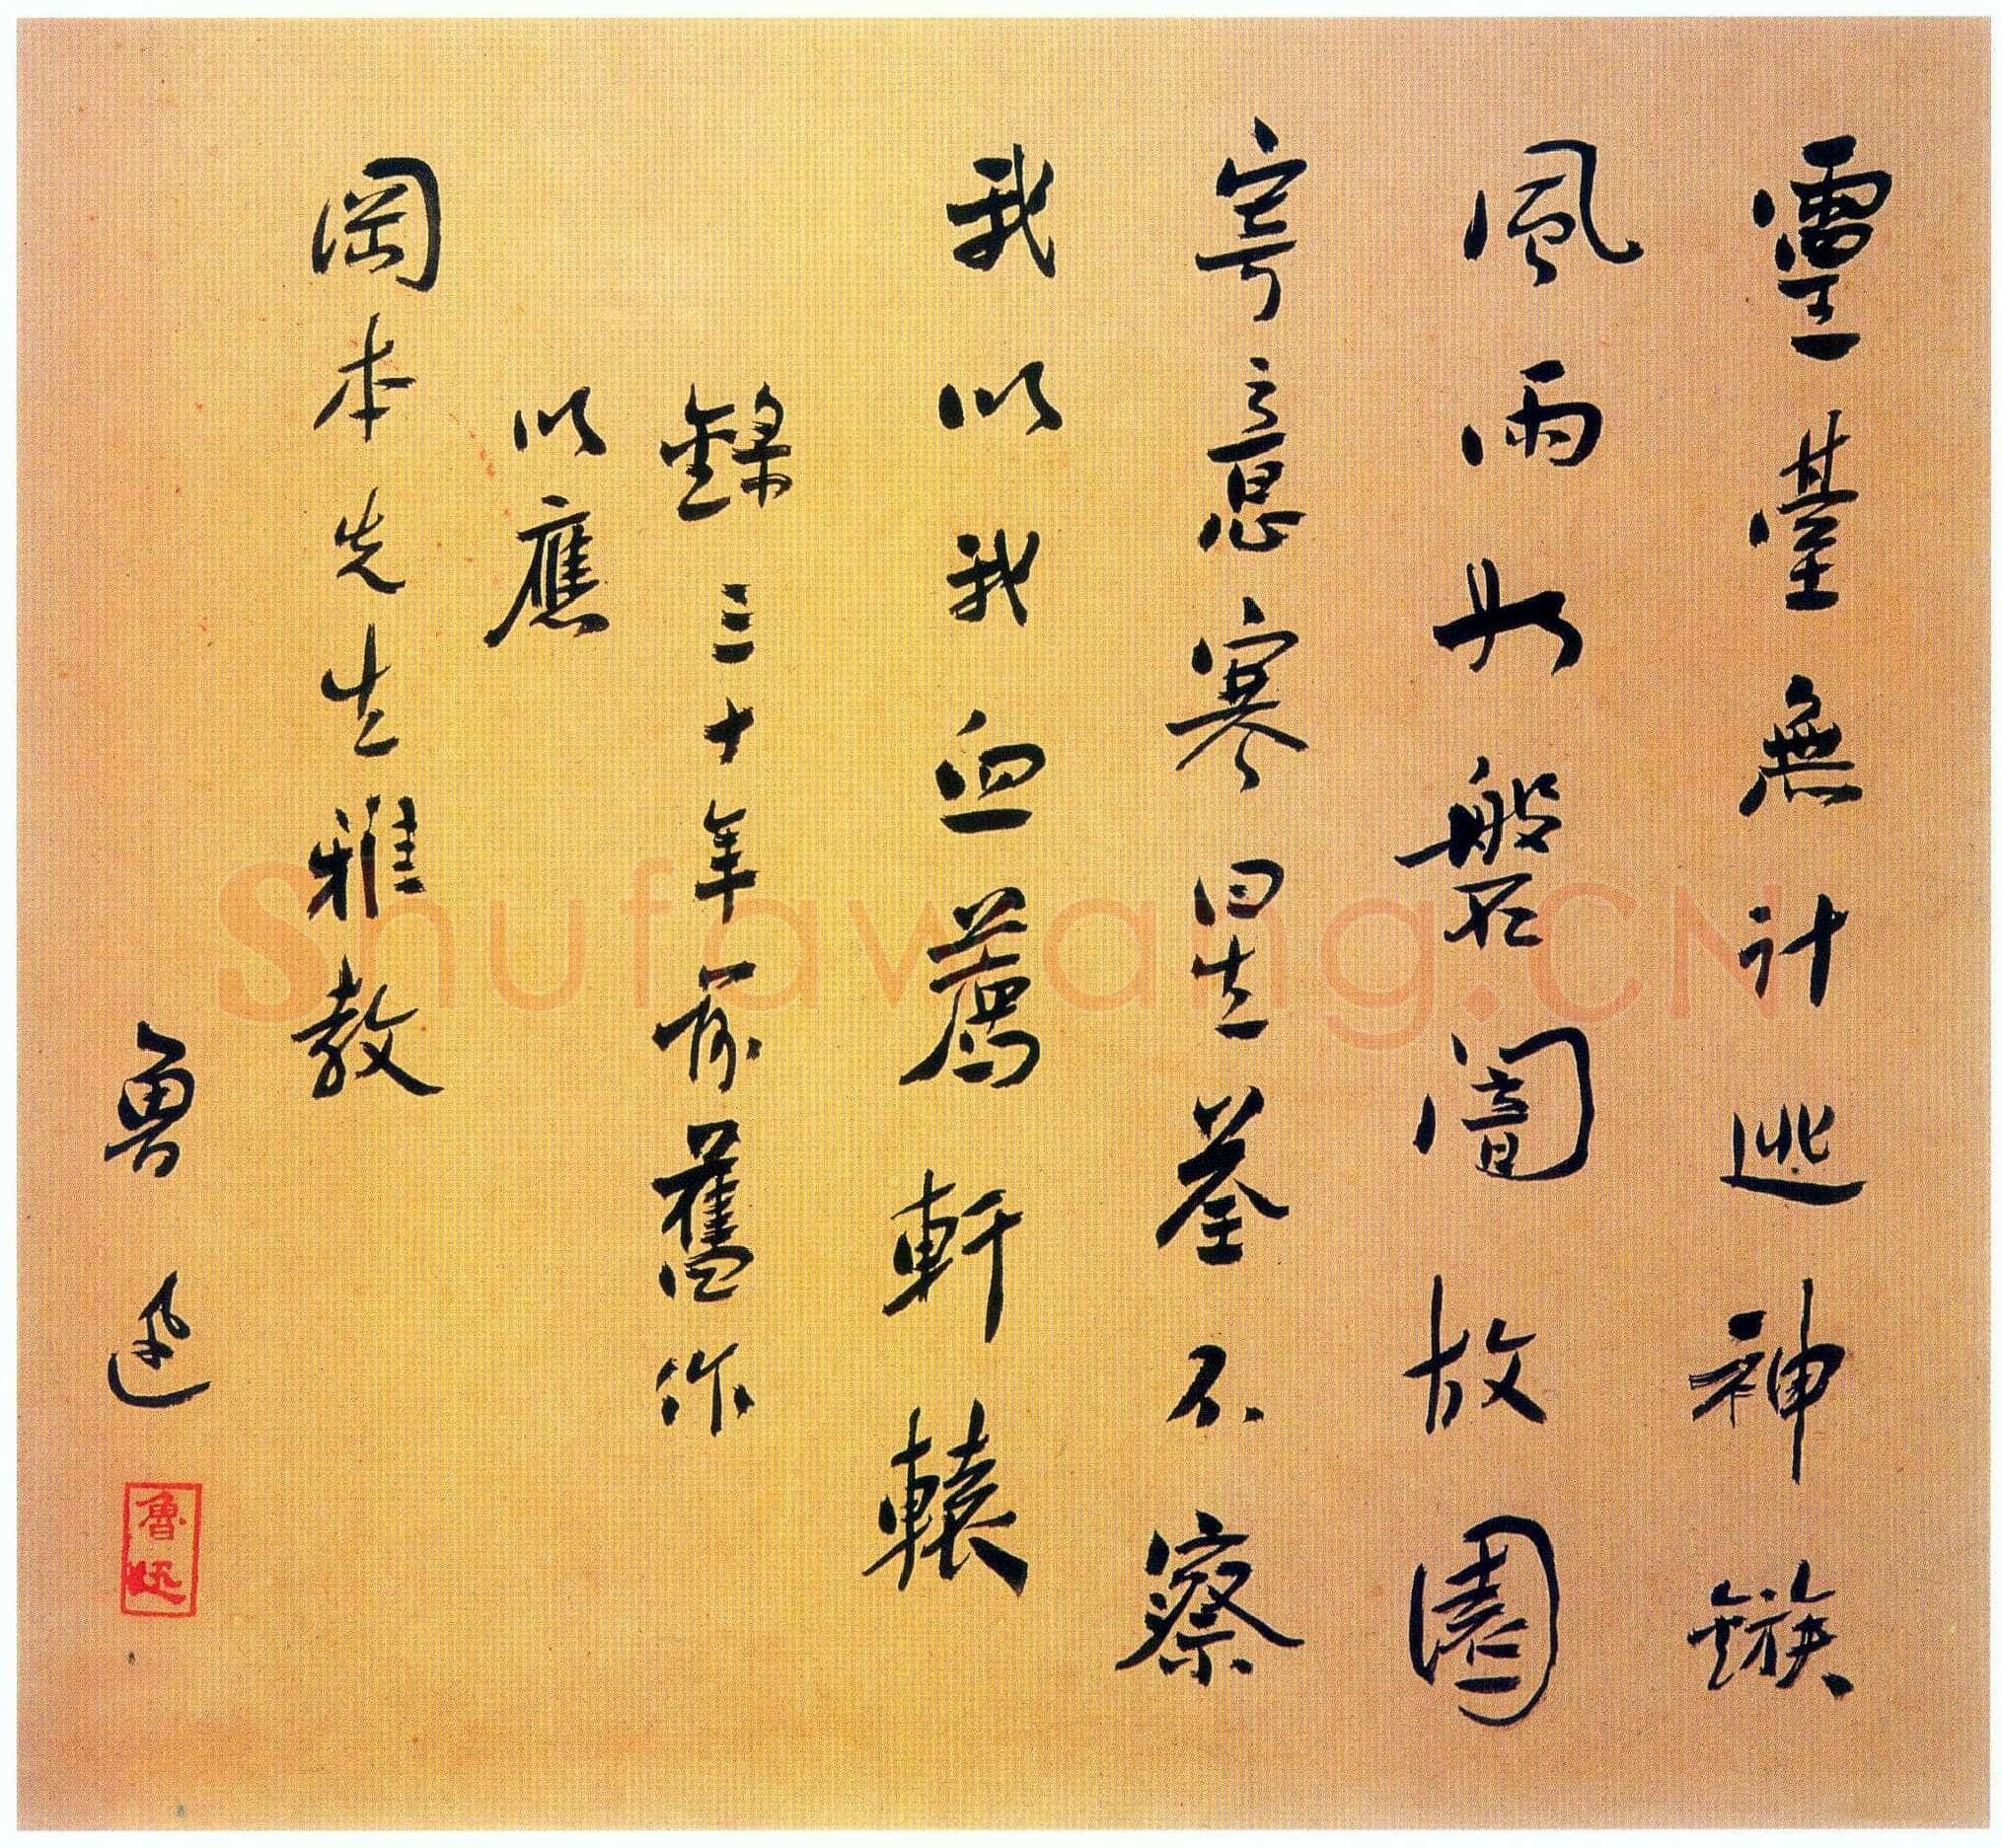 靈臺無計逃神鏃
風雨如磐闇故園
寄意寒星荃不察
我以我血薦軒轅
錄三十年前舊作
以應
岡本先生雅教
魯迅
魯迅
Shufawang.CN